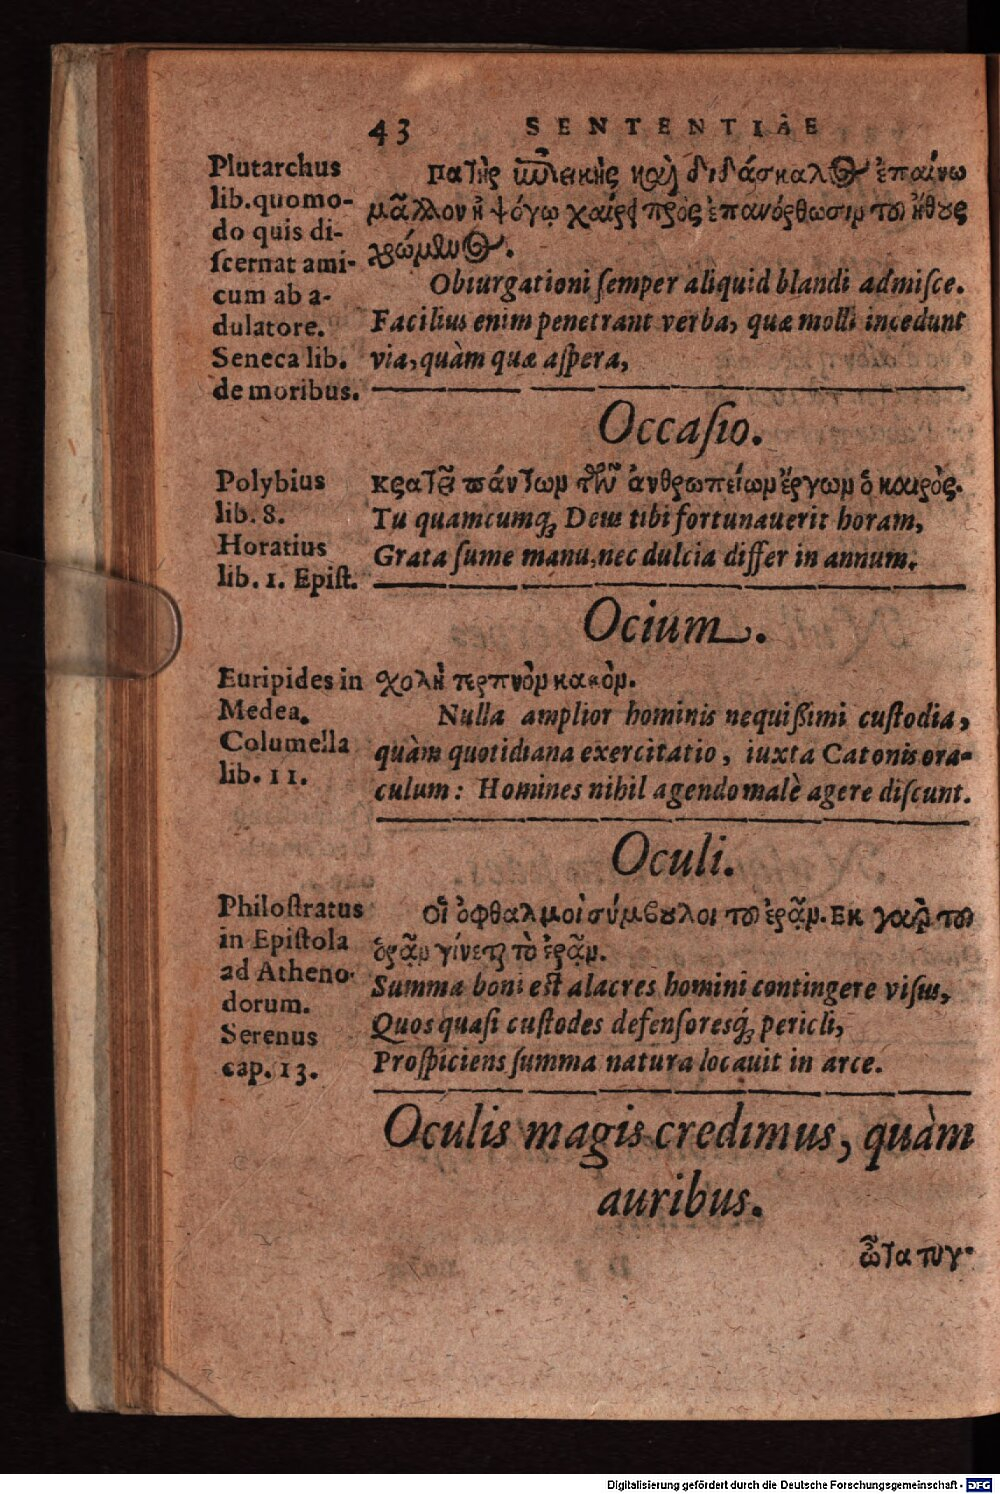 43 SENTENTIAE
Plutarchus
lib. quomo-
do quis di-
ſcernat ami-
cum ab a-
dulatore.
Seneca lib.
de moribus.
πατὴρ ἐπιεικὴς καὶ διδάσκαλος ἐπαίνῳ
μᾶλλον ἢ ψόγῳ χαίρει πρὸς ἐπανόρθωσιν τοῦ ἤθους
χρώμενος.
Obiurgationi ſemper aliquid blandi admiſce.
Facilius enim penetrant verba, quæ molli incedunt
via, quàm quæ aſpera,
Occaſio.
Polybius
lib. 8.
Horatius
lib. 1. Epiſt.
κρατεῖ πάντων τῶν ἀνθρωπείων ἔργων ὁ καιρὸς.
Tu quamcumq; Deus tibi fortunauerit horam,
Grata ſume manu, nec dulcia differ in annum.
Ocium.
Euripides in
Medea.
Columella
lib. 11.
σχολὴ τερπνὸν κακὸν.
Nulla amplior hominis nequiſſimi cuſtodia,
quàm quotidiana exercitatio, iuxta Catonis ora-
culum: Homines nihil agendo malè agere diſcunt.
Oculi.
Philoſtratus
in Epiſtola
ad Atheno-
dorum.
Serenus
cap. 13.
Οἱ ὀφθαλμοὶ σύμβουλοι τοῦ ἐρᾷν. Εκ γὰρ τοῦ
ὁρᾷν γίνεται τὸ ἐρᾷν.
Summa boni eſt alacres homini contingere viſus,
Quos quaſi cuſtodes defenſoresq; pericli,
Proſpiciens ſumma natura locauit in arce.
Oculis magis credimus, quàm
auribus.
ὦτα τυγ-
Digitalisierung gefördert durch die Deutsche Forschungsgemeinschaft - DFG